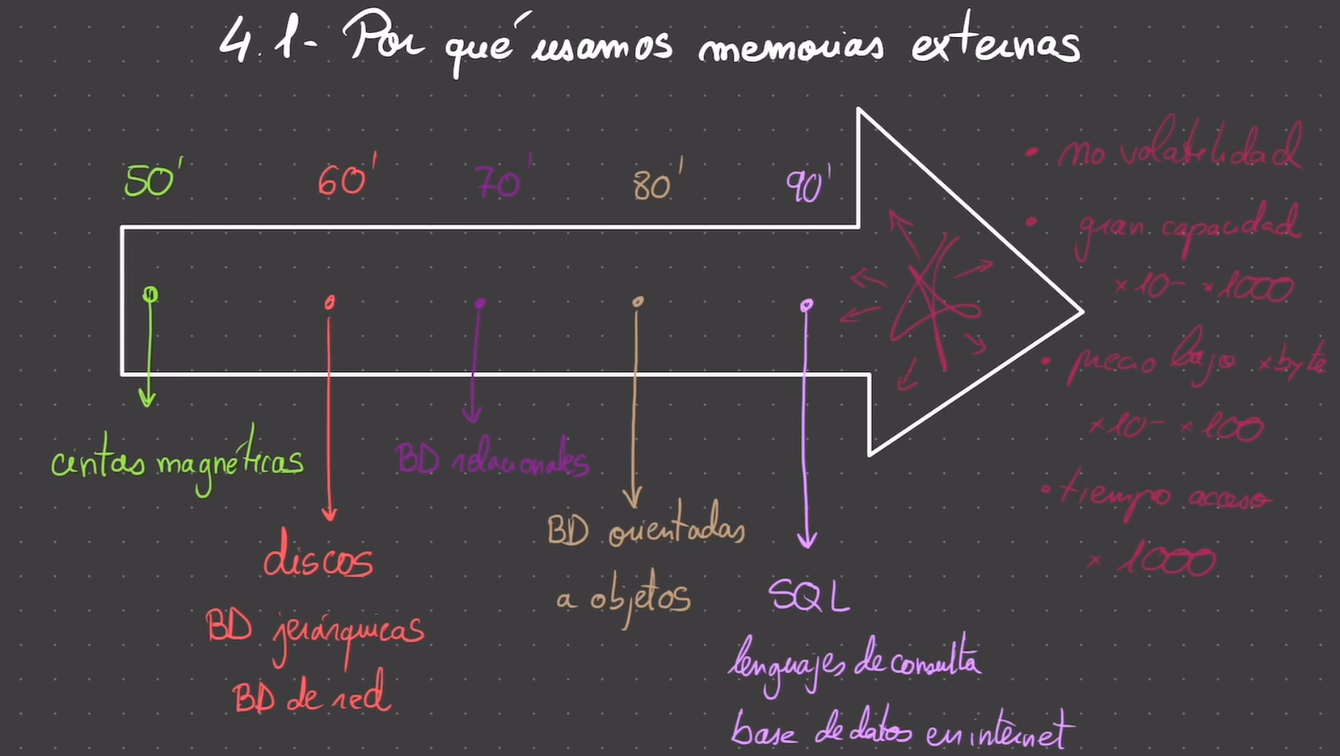 4.1- Por qué usamos memorias externas
50'
60'
70'
80'
90'
cintas magnéticas
discos
BD jerárquicas
BD de red
BD relacionales
BD orientadas
a objetos
SQL
lenguajes de consulta
base de datos en internet
• no volatilidad
• gran capacidad
×10 - ×1000
• precio bajo × byte
×10 - ×100
• tiempo acceso
× 1000